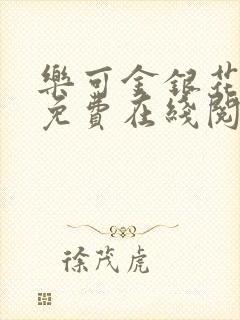 樂可金銀花
免費在綫閱
徐茂虎